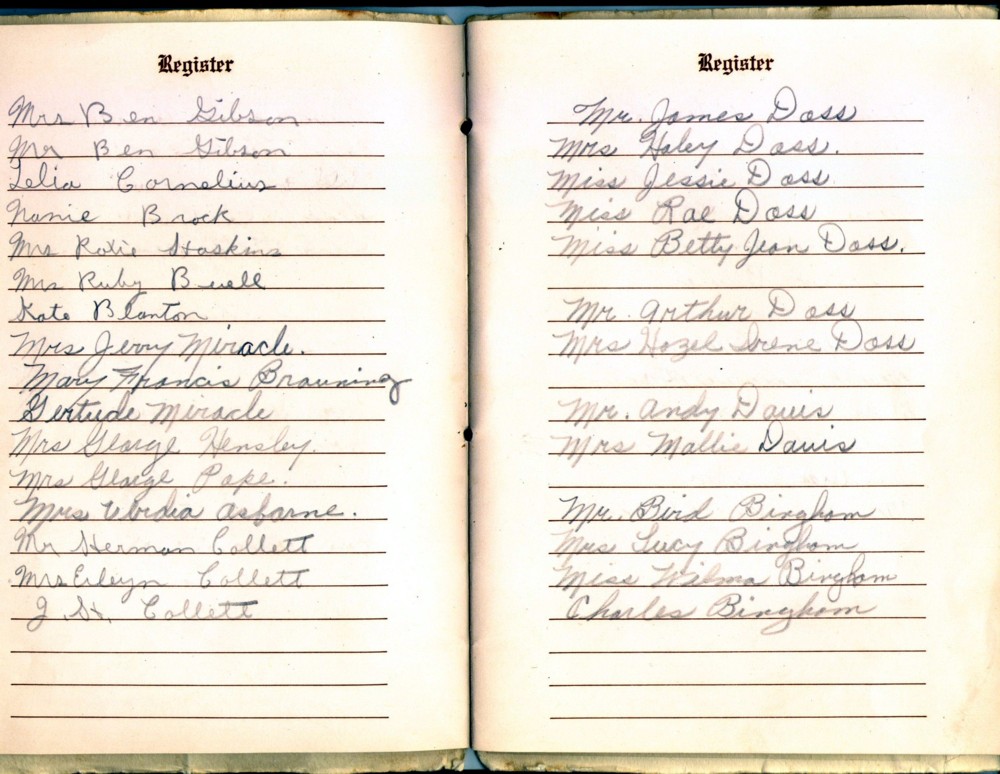 Register
Mrs Ben Gibson
Mr Ben Gibson
Lelia Cornelius
Nanie Brock
Mrs Katie Hoskins
Mrs Ruby
Kate Blanton
Mrs Jerry Miracle.
Mary Francis Brauning
Gertude Miracle
Mrs George Hensley.
Mrs George Pope.
Mrs Asborne.
Mr Herman Collett
Mrs Collett
J. H. Collett
Register
Mr. James Doss
Mrs Haley Doss.
Miss Jessie Doss
Miss Rae Doss
Miss Betty Jean Doss.
Mr. Arthur Doss
Mrs Hazel Irene Doss
Mr. Andy Davis
Mrs Mallie Davis
Mr. Bird Bingham
Mrs Lucy Bingham
Miss Wilma Bingham
Charles Bingham